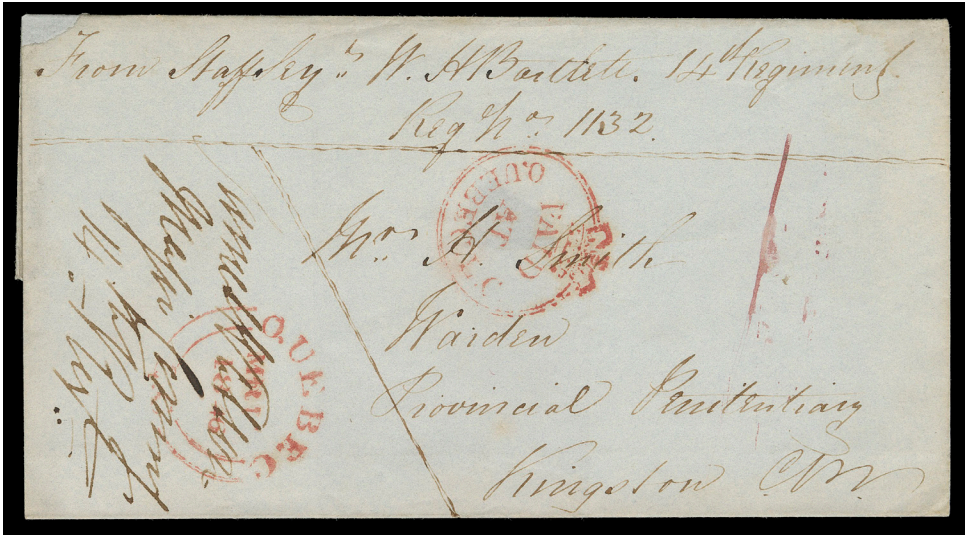 From Staff Serj.t W. H. Bartlett. 14th Regiment
Reg No. 1132.
PAID
AT
QUEBEC
H Smith
Warden
Provincial Penitentiary
Kingston C.W.
QUEBEC
Major Comg
14